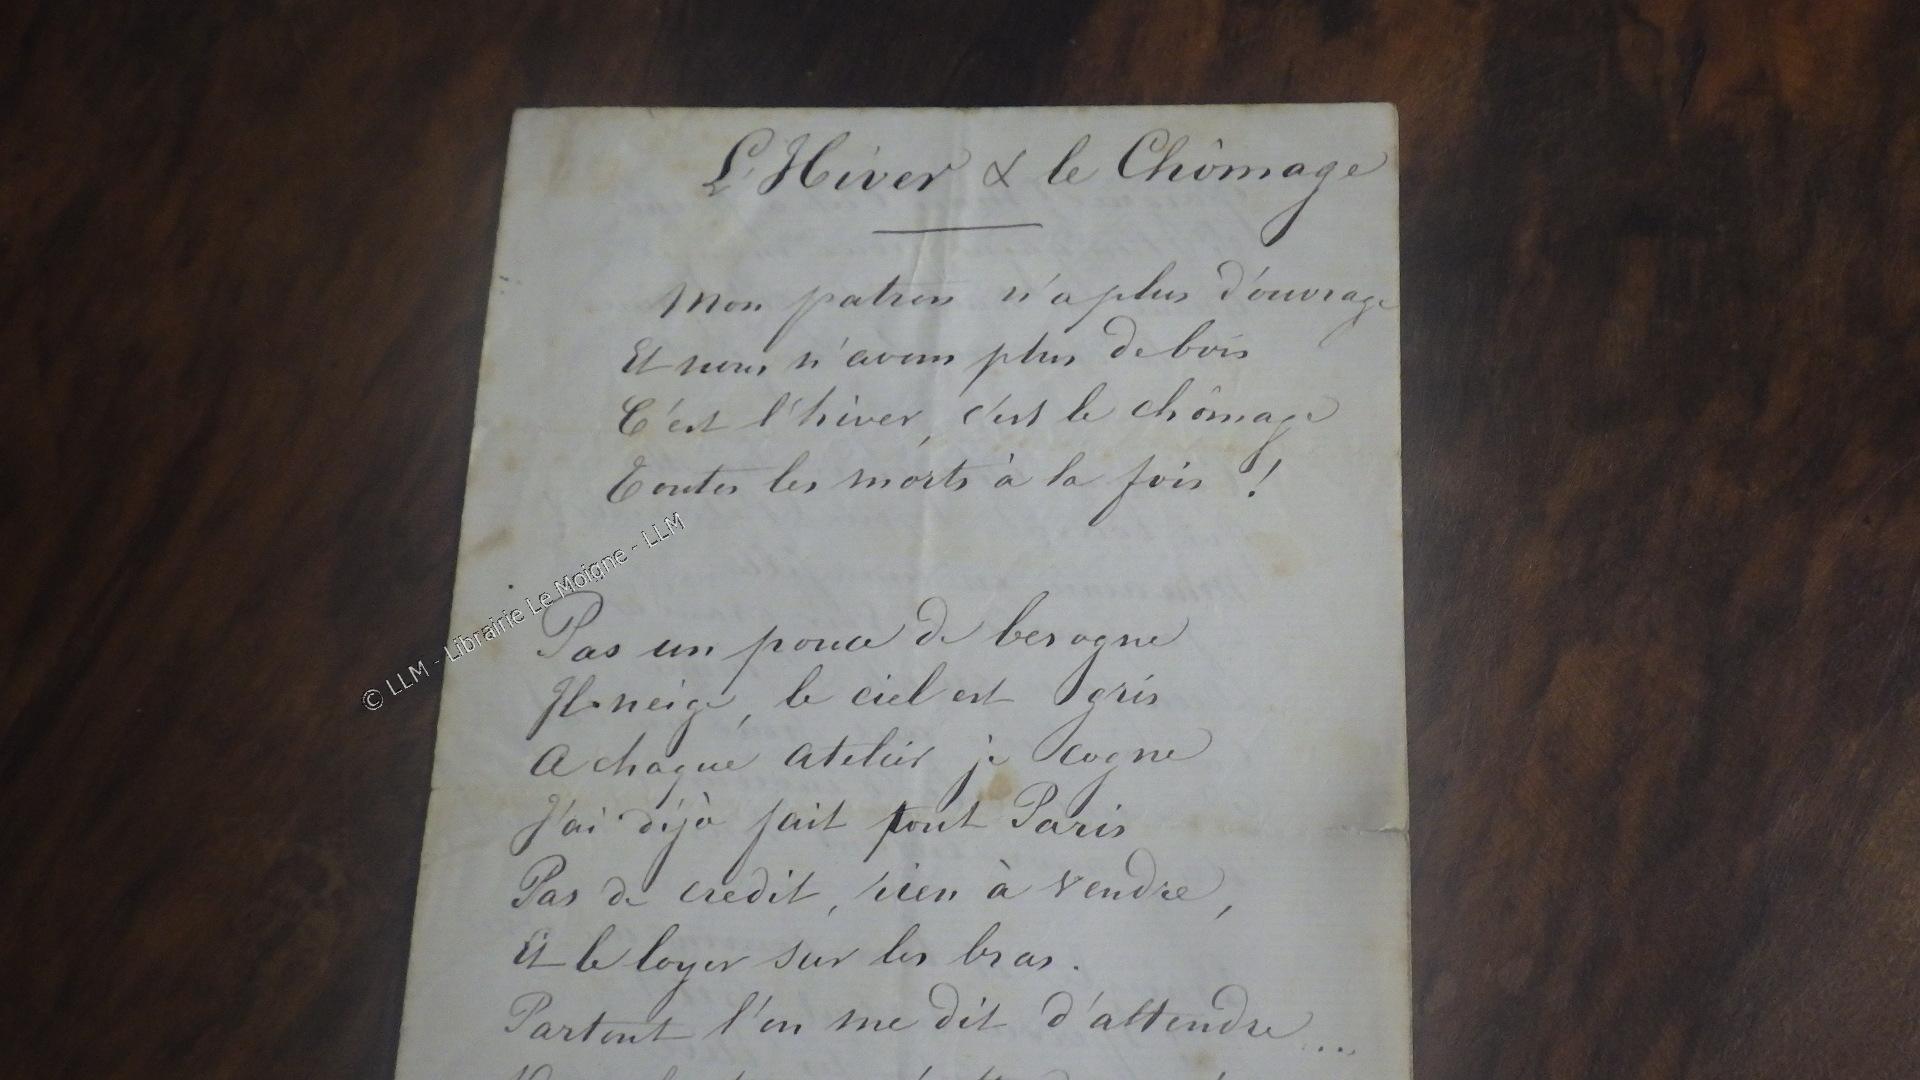 L'Hiver & le Chômage
Mon patron n'a plus d'ouvrage
Et nous n'avons plus de bois
C'est l'hiver, c'est le chômage
Toutes les morts à la fois !
Pas un pouce de besogne
Il neige, le ciel est gris
A chaque atelier je cogne
J'ai déjà fait tout Paris
Pas de credit, rien à vendre,
Et le loyer sur les bras.
Partout l'on me dit d'attendre...
© LLM - Librairie Le Moigne - LLM